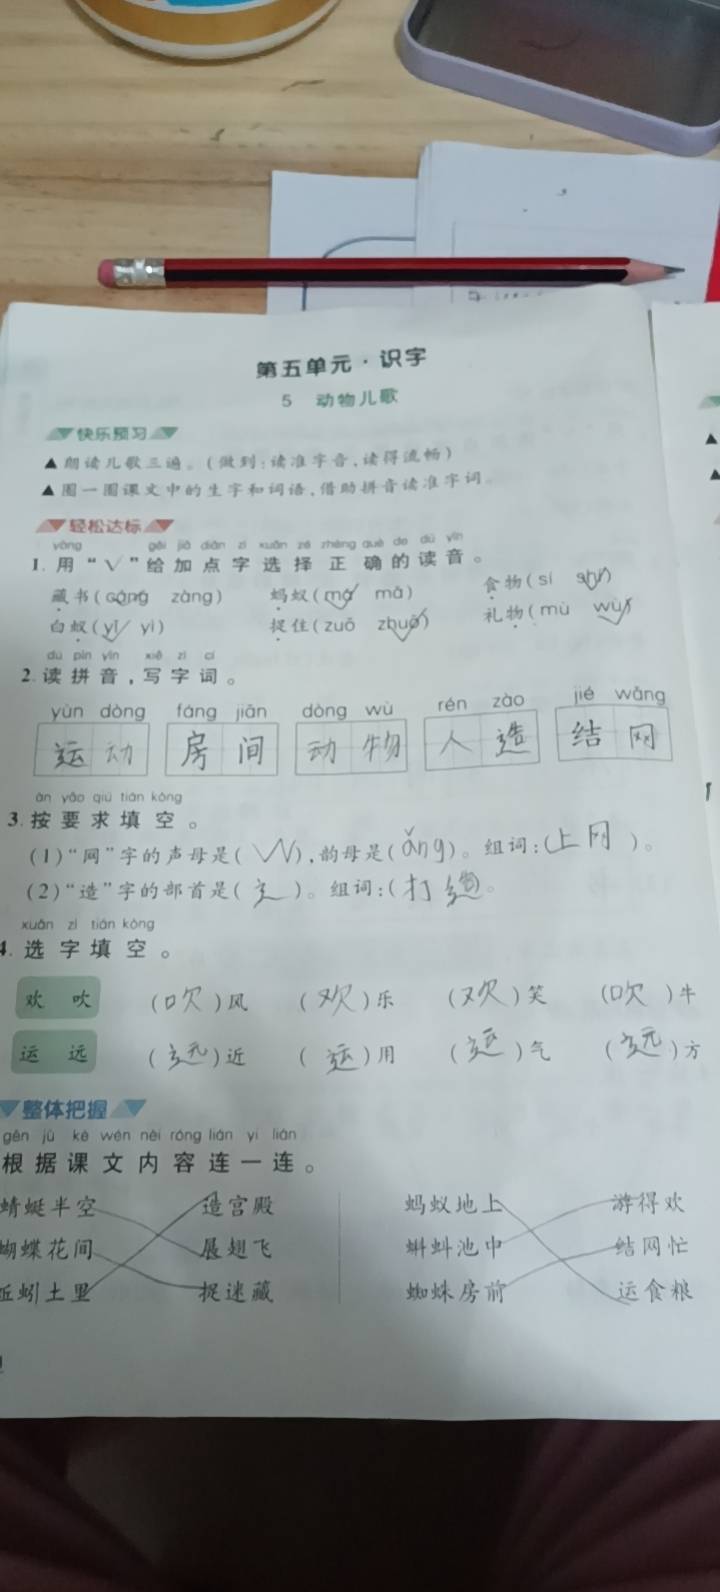 第五单元·识字
5 动物儿歌
快乐预习
▲朗读儿歌三遍。(做到:读准字音,读得流畅)
▲圈一圈课文中的生字和词语,借助拼音读准字词。
轻松达标
yòng gěi jiā diǎn zì xuǎn zé zhèng què de dú yīn
1.用“√”给加点字选择正确的读音。
藏书(cáng zàng) 蚂蚁(mǎ mā) 食物(sí shí)
白蚁(yǐ yì) 捉住(zuō zhuō) 礼物(mù wù)
dú pīn yīn xiě zì cí
2.读拼音,写字词。
yùn dòng fáng jiān dòng wù rén zào jié wǎng
运动 房间 动物 人造 结网
àn yāo qiú tián kòng
3.按要求填空。
(1)“网”字的声母是(W),韵母是(ǎng)。组词:(上网)。
(2)“造”字的部首是(辶)。组词:(打造)。
xuǎn zì tián kòng
4.选字填空。
欢 吹 (吹)风 (欢)乐 (欢)笑 (吹)牛
运 远 (远)近 (运)用 (运)气 (远)方
整体把握
gēn jù kè wén nèi róng lián yi lián
根据课文内容连一连。
蜻蜓半空 造宫殿 蚂蚁地上 游得欢
蝴蝶花间 展翅飞 蝌蚪池中 结网忙
蚯蚓土里 捉迷藏 蜘蛛房前 运食粮